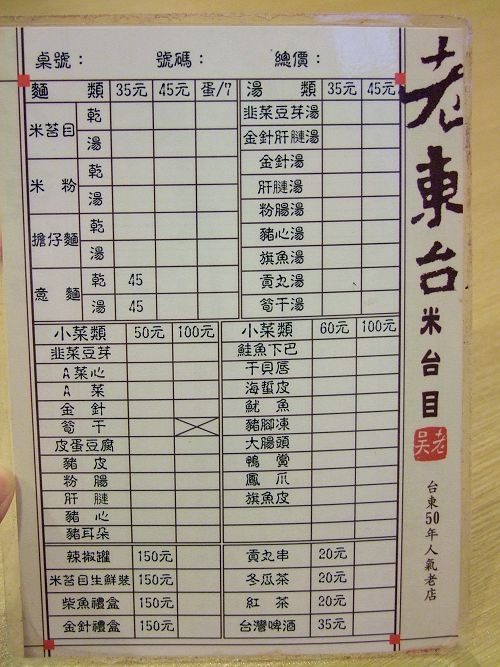 桌號： 號碼： 總價：
麵類 35元 45元 蛋/7 湯類 35元 45元
米苔目 乾 韭菜豆芽湯
湯 金針肝膶湯
米粉 乾 金針湯
湯 肝膶湯
擔仔麵 乾 粉腸湯
湯 豬心湯
意麵 乾 45 旗魚湯
湯 45 貢丸湯
筍干湯
小菜類 50元 100元 小菜類 60元 100元
韭菜豆芽 鮭魚下巴
A菜心 干貝唇
A菜 海蜇皮
金針 魷魚
筍干 豬腳凍
皮蛋豆腐 大腸頭
豬皮 鴨賞
粉腸 鳳爪
肝膶 旗魚皮
豬心
豬耳朵
辣椒罐 150元 貢丸串 20元
米苔目生鮮裝 150元 冬瓜茶 20元
柴魚禮盒 150元 紅茶 20元
金針禮盒 150元 台灣啤酒 35元
老東台米台目
老吳
台東50年人氣老店